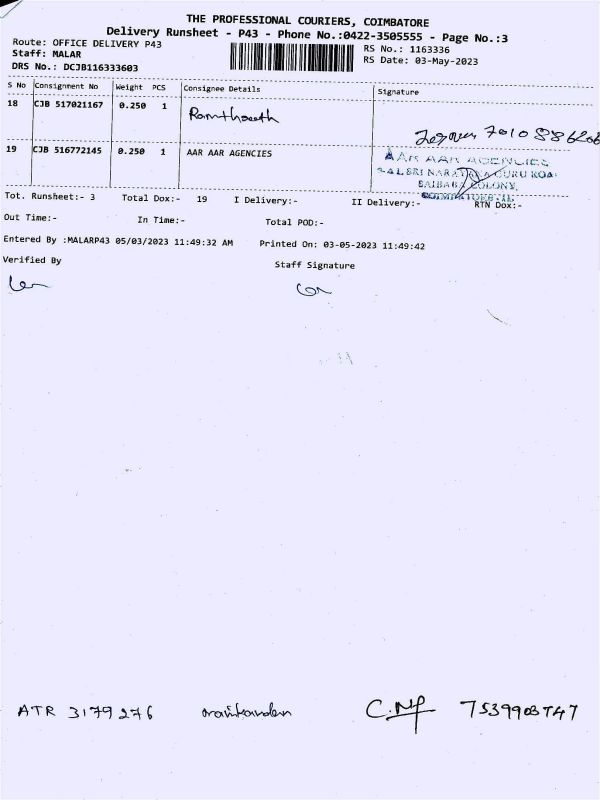 THE PROFESSIONAL COURIERS, COIMBATORE
Delivery Runsheet - P43 - Phone No.:0422-3505555 - Page No.:3
Route: OFFICE DELIVERY P43
RS No.: 1163336
Staff: MALAR
RS Date: 03-May-2023
DRS No.: DCJB116333603
S No Consignment No Weight PCS Consignee Details Signature
18 CJB 517021167 0.250 1
19 CJB 516772145 0.250 1 AAR AAR AGENCIES
AAR AAR AGENCIES
SAIBABA COLONY,
Tot. Runsheet:- 3 Total Dox:- 19 I Delivery:- II Delivery:- RTN Dox:-
Out Time:- In Time:- Total POD:-
Entered By :MALARP43 05/03/2023 11:49:32 AM Printed On: 03-05-2023 11:49:42
Verified By Staff Signature
ATR 3179276 7539903747